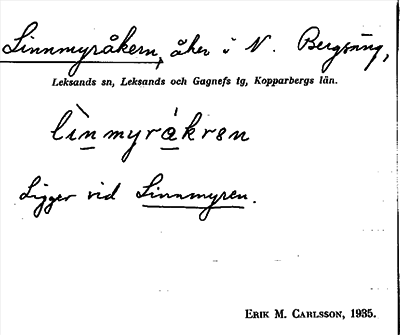 Linnmyråkern, åker i N. Bergsäng,
Leksands sn, Leksands och Gagnefs tg, Kopparbergs län.
lìnmyrákrən
Ligger vid Linnmyren.
ERIK M. CARLSSON, 1935.